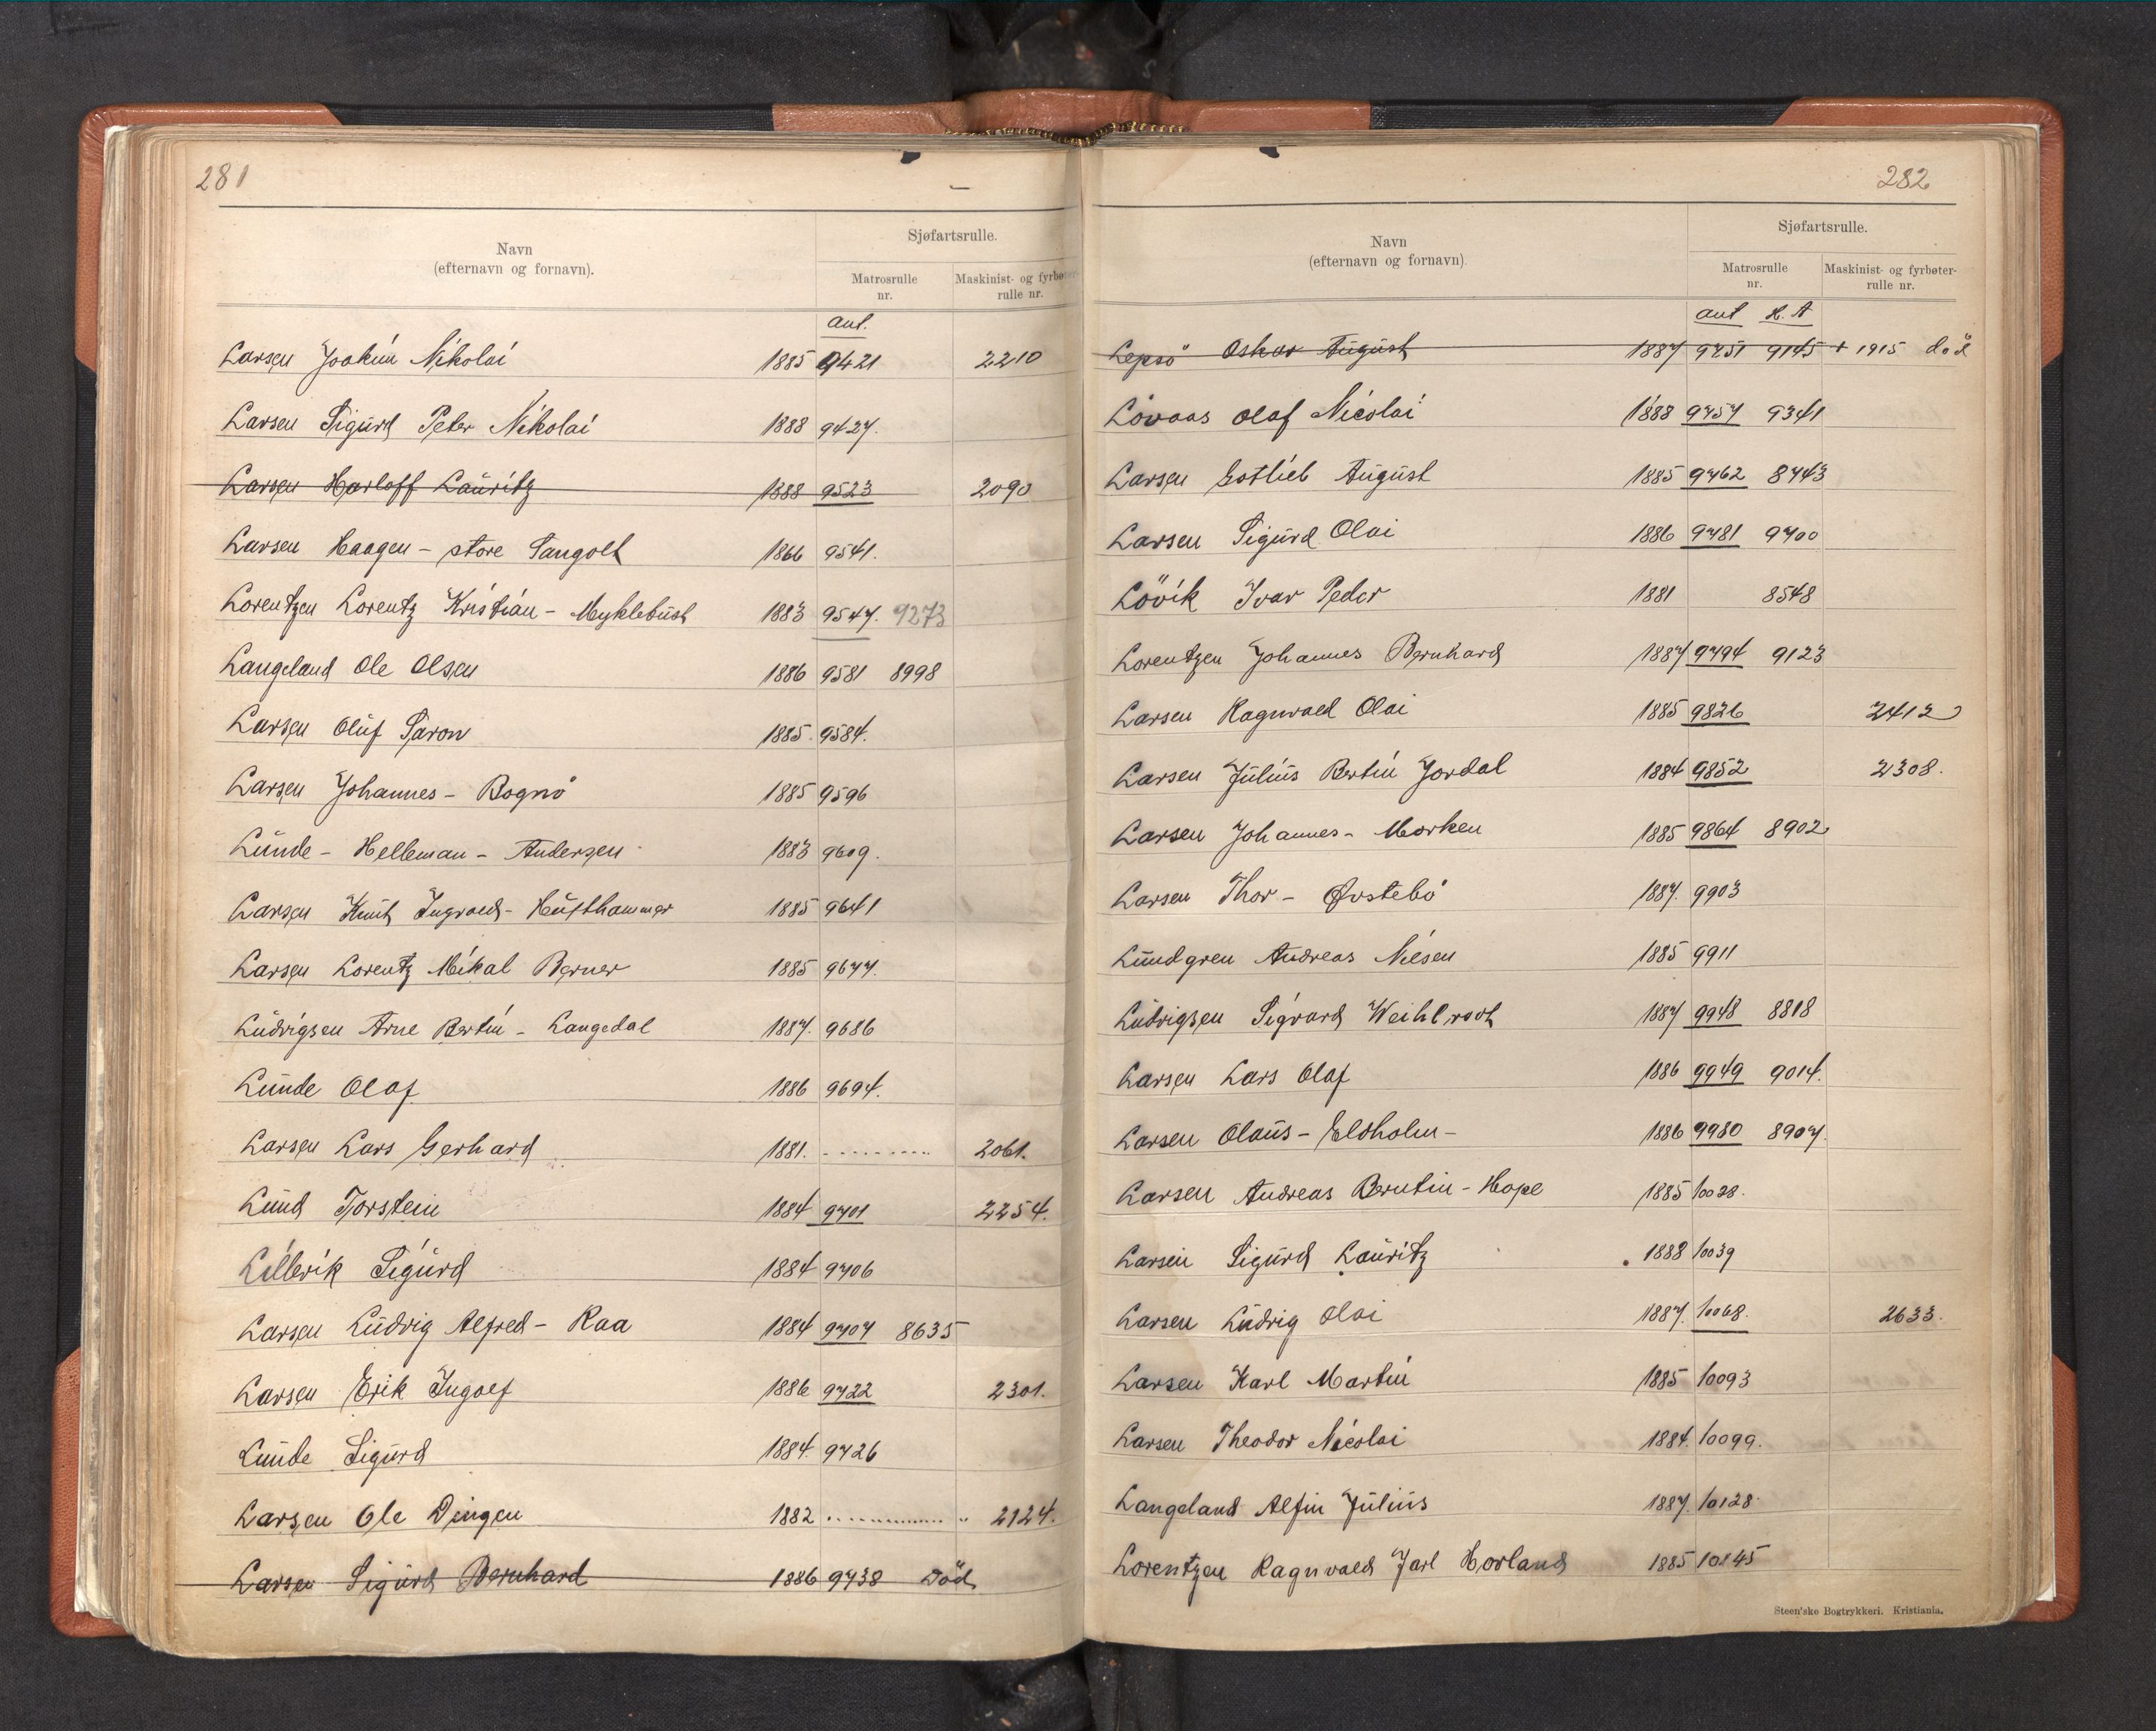 281
Navn
(efternavn og fornavn).
Sjøfartsrulle.
Matrosrulle
nr.
Maskinist- og fyrbøter-
rulle nr.
ant.
Larsen Joakim Nikolai 1885 9421 2210
Larsen Sigurd Peter Nikolai 1888 9427.
Larsen Harloff Lauritz 1888 9523 2090
Larsen Haagen - store Sangolt 1866 9541.
Lorentzen Lorentz Kristian - Myklebust 1883 9547. 9273
Langeland Ole Olsen 1886 9581 8998
Larsen Oluf Saron 1885 9584.
Larsen Johannes - Rognö 1885 9596
Lunde - Helleman - Andersen 1883 9609.
Larsen Knut Ingvald - Hufthammer 1885 9641
Larsen Lorentz Mikal Berner 1885 9677.
Ludvigsen Arne Bertin - Langedal 1887. 9686
Lunde Olaf 1886 9694.
Larsen Lars Gerhard 1881. .......... 2061.
Lund Torstein 1884 9701 2254.
Lillevik Sigurd 1884 9706
Larsen Ludvig Alfred - Raa 1884 9707 8635
Larsen Erik Ingolf 1886 9722 2301.
Lunde Sigurd 1884. 9726
Larsen Ole Dingen 1882 ............ 2124.
Larsen Sigurd Bernhard 1886 9738 Död
282
Navn
(efternavn og fornavn).
Sjøfartsrulle.
Matrosrulle
nr.
Maskinist- og fyrbøter-
rulle nr.
ant H. A
Lepsö Oskar August 1887 9751 9145 + 1915 död
Lövaas Olaf Nicolai 1888 9757 9341
Larsen Gotlieb August 1885 9762 8743
Larsen Sigurd Olai 1886 9781 9700
Lövik Ivar Peder 1881 8548
Lorentzen Johannes Bernhard 1887 9794 9123
Larsen Ragnvald Olai 1885 9826 2412
Larsen Julius Bertin Jordal 1884 9852 2308.
Larsen Johannes - Morken 1885 9864 8902
Larsen Thor - Øvstebö 1887. 9903
Lundgren Andreas Nilsen 1885 9911
Ludvigsen Sigvard 1887 9948 8818
Larsen Lars Olaf 1886 9949 9014.
Larsen Olaus - Eldholm - 1886 9980 8907.
Larsen Andreas Berntin - Hope 1885 10028.
Larsen Sigurd Lauritz 1888 10039
Larsen Ludvig Olai 1887. 10068. 2633.
Larsen Karl Martin 1885 10093
Larsen Theodor Nicolai 1884. 10099.
Langeland Alfin Julius 1887. 10128.
Lorentzen Ragnvald Jarl Horland 1885 10145
Steen'ske Bogtrykkeri. Kristiania.